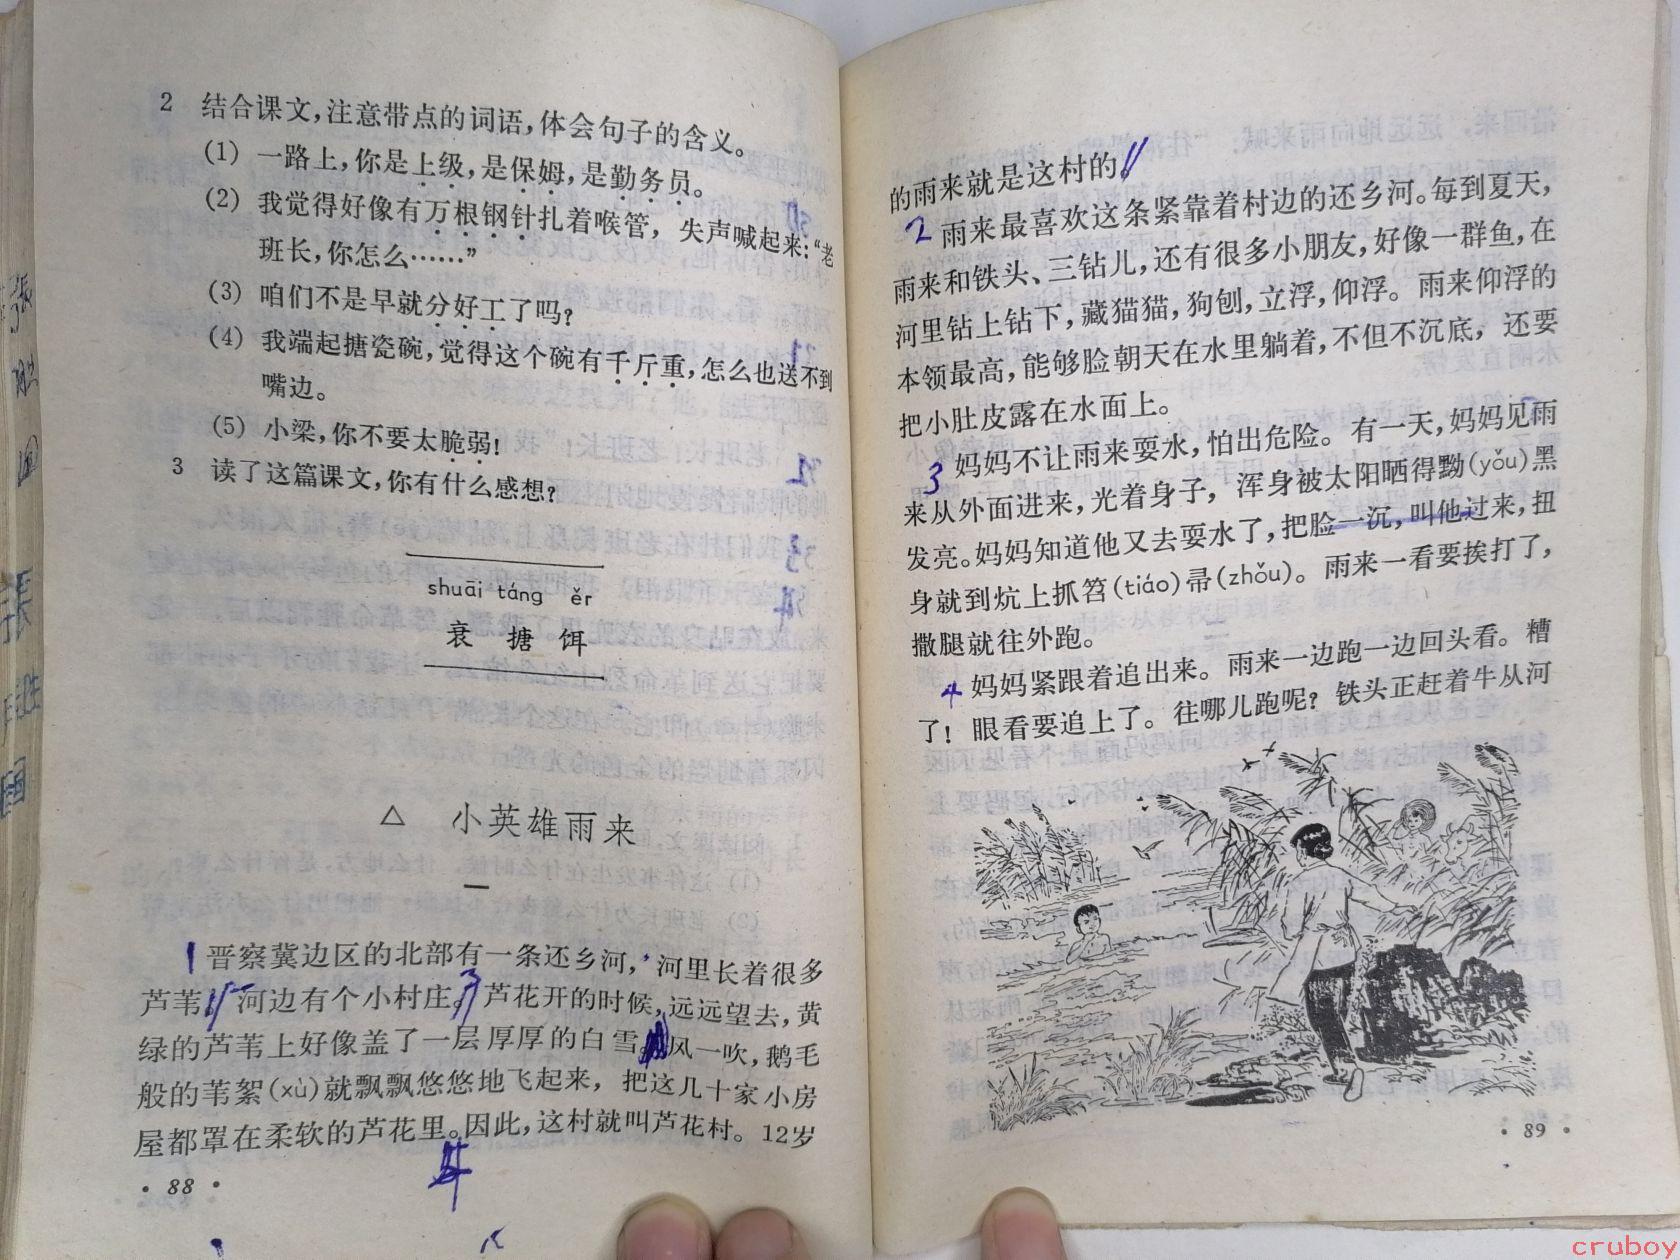 2 结合课文,注意带点的词语,体会句子的含义。
(1) 一路上,你是上级,是保姆,是勤务员。
(2) 我觉得好像有万根钢针扎着喉管, 失声喊起来:“老
班长,你怎么……”
(3) 咱们不是早就分好工了吗?
(4) 我端起搪瓷碗,觉得这个碗有千斤重,怎么也送不到
嘴边。
(5) 小梁,你不要太脆弱!
3 读了这篇课文,你有什么感想?
shuāi táng ěr
衰 搪 饵
△ 小英雄雨来
一
1 晋察冀边区的北部有一条还乡河, 河里长着很多
芦苇。河边有个小村庄。芦花开的时候,远远望去,黄
绿的芦苇上好像盖了一层厚厚的白雪。风一吹,鹅毛
般的苇絮(xù)就飘飘悠悠地飞起来, 把这几十家小房
屋都罩在柔软的芦花里。因此,这村就叫芦花村。12岁
· 88 ·
的雨来就是这村的。
2 雨来最喜欢这条紧靠着村边的还乡河。每到夏天,
雨来和铁头、三钻儿,还有很多小朋友,好像一群鱼,在
河里钻上钻下,藏猫猫,狗刨,立浮,仰浮。 雨来仰浮的
本领最高,能够脸朝天在水里躺着,不但不沉底, 还要
把小肚皮露在水面上。
3 妈妈不让雨来耍水,怕出危险。 有一天,妈妈见雨
来从外面进来,光着身子, 浑身被太阳晒得黝(yǒu)黑
发亮。妈妈知道他又去耍水了,把脸一沉,叫他过来,扭
身就到炕上抓笤(tiáo)帚(zhǒu)。雨来一看要挨打了,
撒腿就往外跑。
4 妈妈紧跟着追出来。 雨来一边跑一边回头看。 糟
了! 眼看要追上了。往哪儿跑呢? 铁头正赶着牛从河
· 89 ·
cruboy